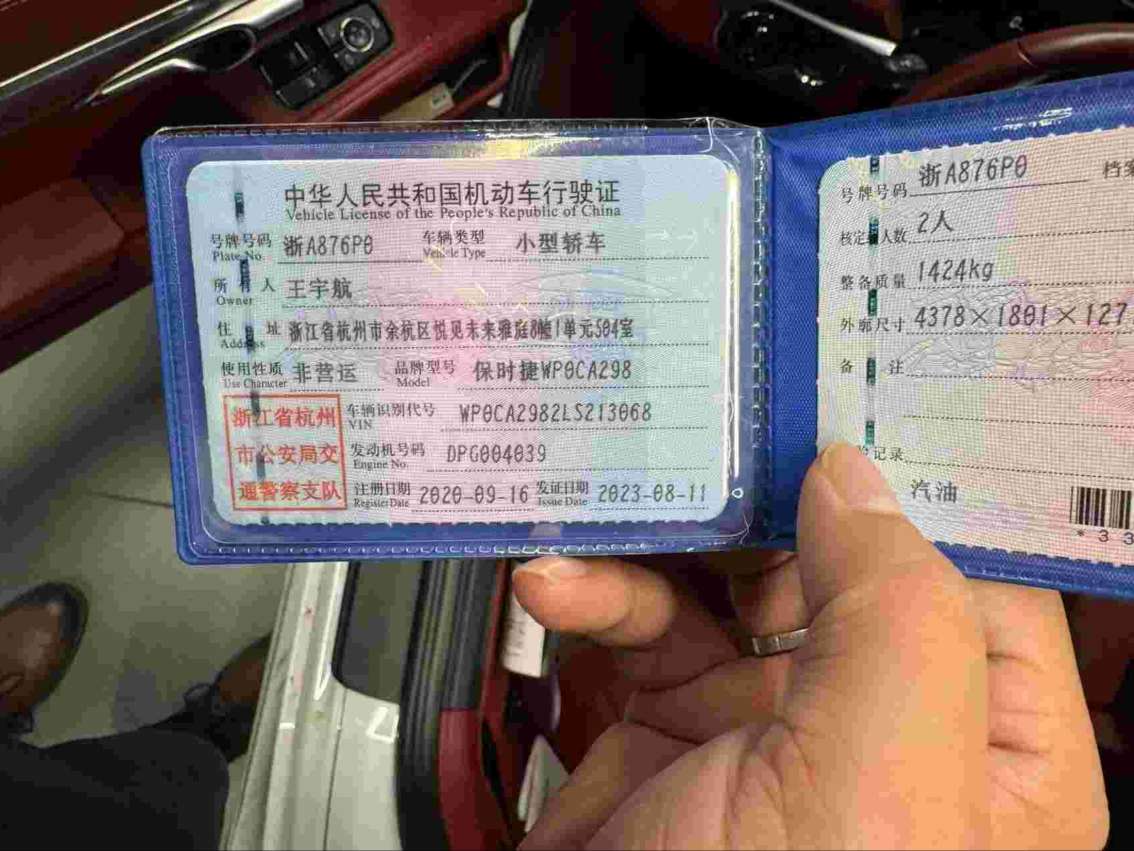 中华人民共和国机动车行驶证
Vehicle License of the People's Republic of China
号牌号码 浙A876P0 车辆类型 小型轿车
Plate No. Vehicle Type
所有人 王宇航
Owner
住址 浙江省杭州市余杭区悦见未来雅庭8幢1单元504室
Address
使用性质 非营运 品牌型号 保时捷WP0CA298
Use Character Model
浙江省杭州
市公安局交
通警察支队
车辆识别代号 WP0CA2982LS213068
VIN
发动机号码 DPG004039
Engine No.
注册日期 2020-09-16 发证日期 2023-08-11
Register Date Issue Date
号牌号码 浙A876P0 档案
核定 人数 2人
整备质量 1424kg
外廓尺寸 4378×1801×127
备注
记录
汽油
*33